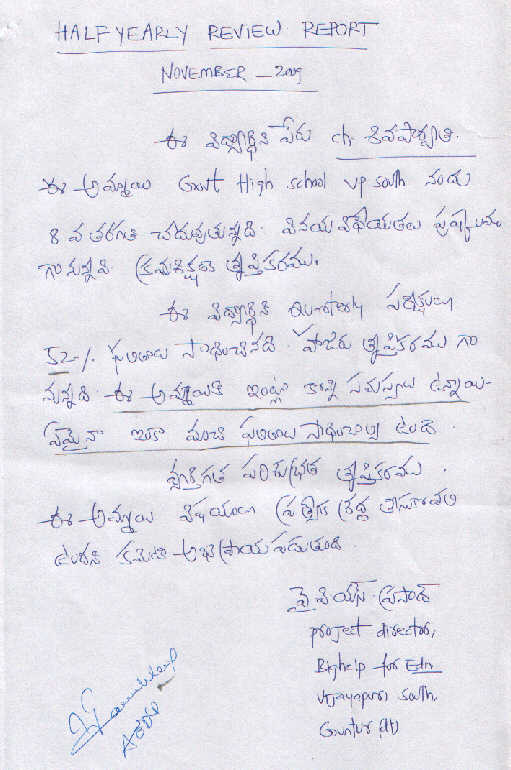 HALF YEARLY REVIEW REPORT
NOVEMBER - 2009
ఈ విద్యార్థిని పేరు ch. శివపార్వతి.
ఈ అమ్మాయి Govt High school VP south నందు
8 వ తరగతి చదువుతున్నది. వినయ విధేయతలు పుష్కలంగా
గానున్నవి. క్రమశిక్షణ తృప్తికరము.
ఈ విద్యార్థిని Quarterly పరీక్షలలో
52% ఫలితాలు సాధించినది. హాజరు తృప్తికరము గా
నున్నది. ఈ అమ్మాయికి ఇంట్లో కొన్ని సమస్యలు ఉన్నాయి.
ఏమైనా ఇంకా మంచి ఫలితాలు సాధించాల్సి ఉంది.
వ్యక్తిగత పరిశుభ్రత తృప్తికరము.
ఈ అమ్మాయి విషయంలో ప్రత్యేక శ్రద్ధ తీసుకోవలసి
ఉందని కమిటి అభిప్రాయపడుతుంది.
వై. శివ ప్రసాద్
project director,
Bighelp for Edn
Vijayapuri south,
Guntur (dt)